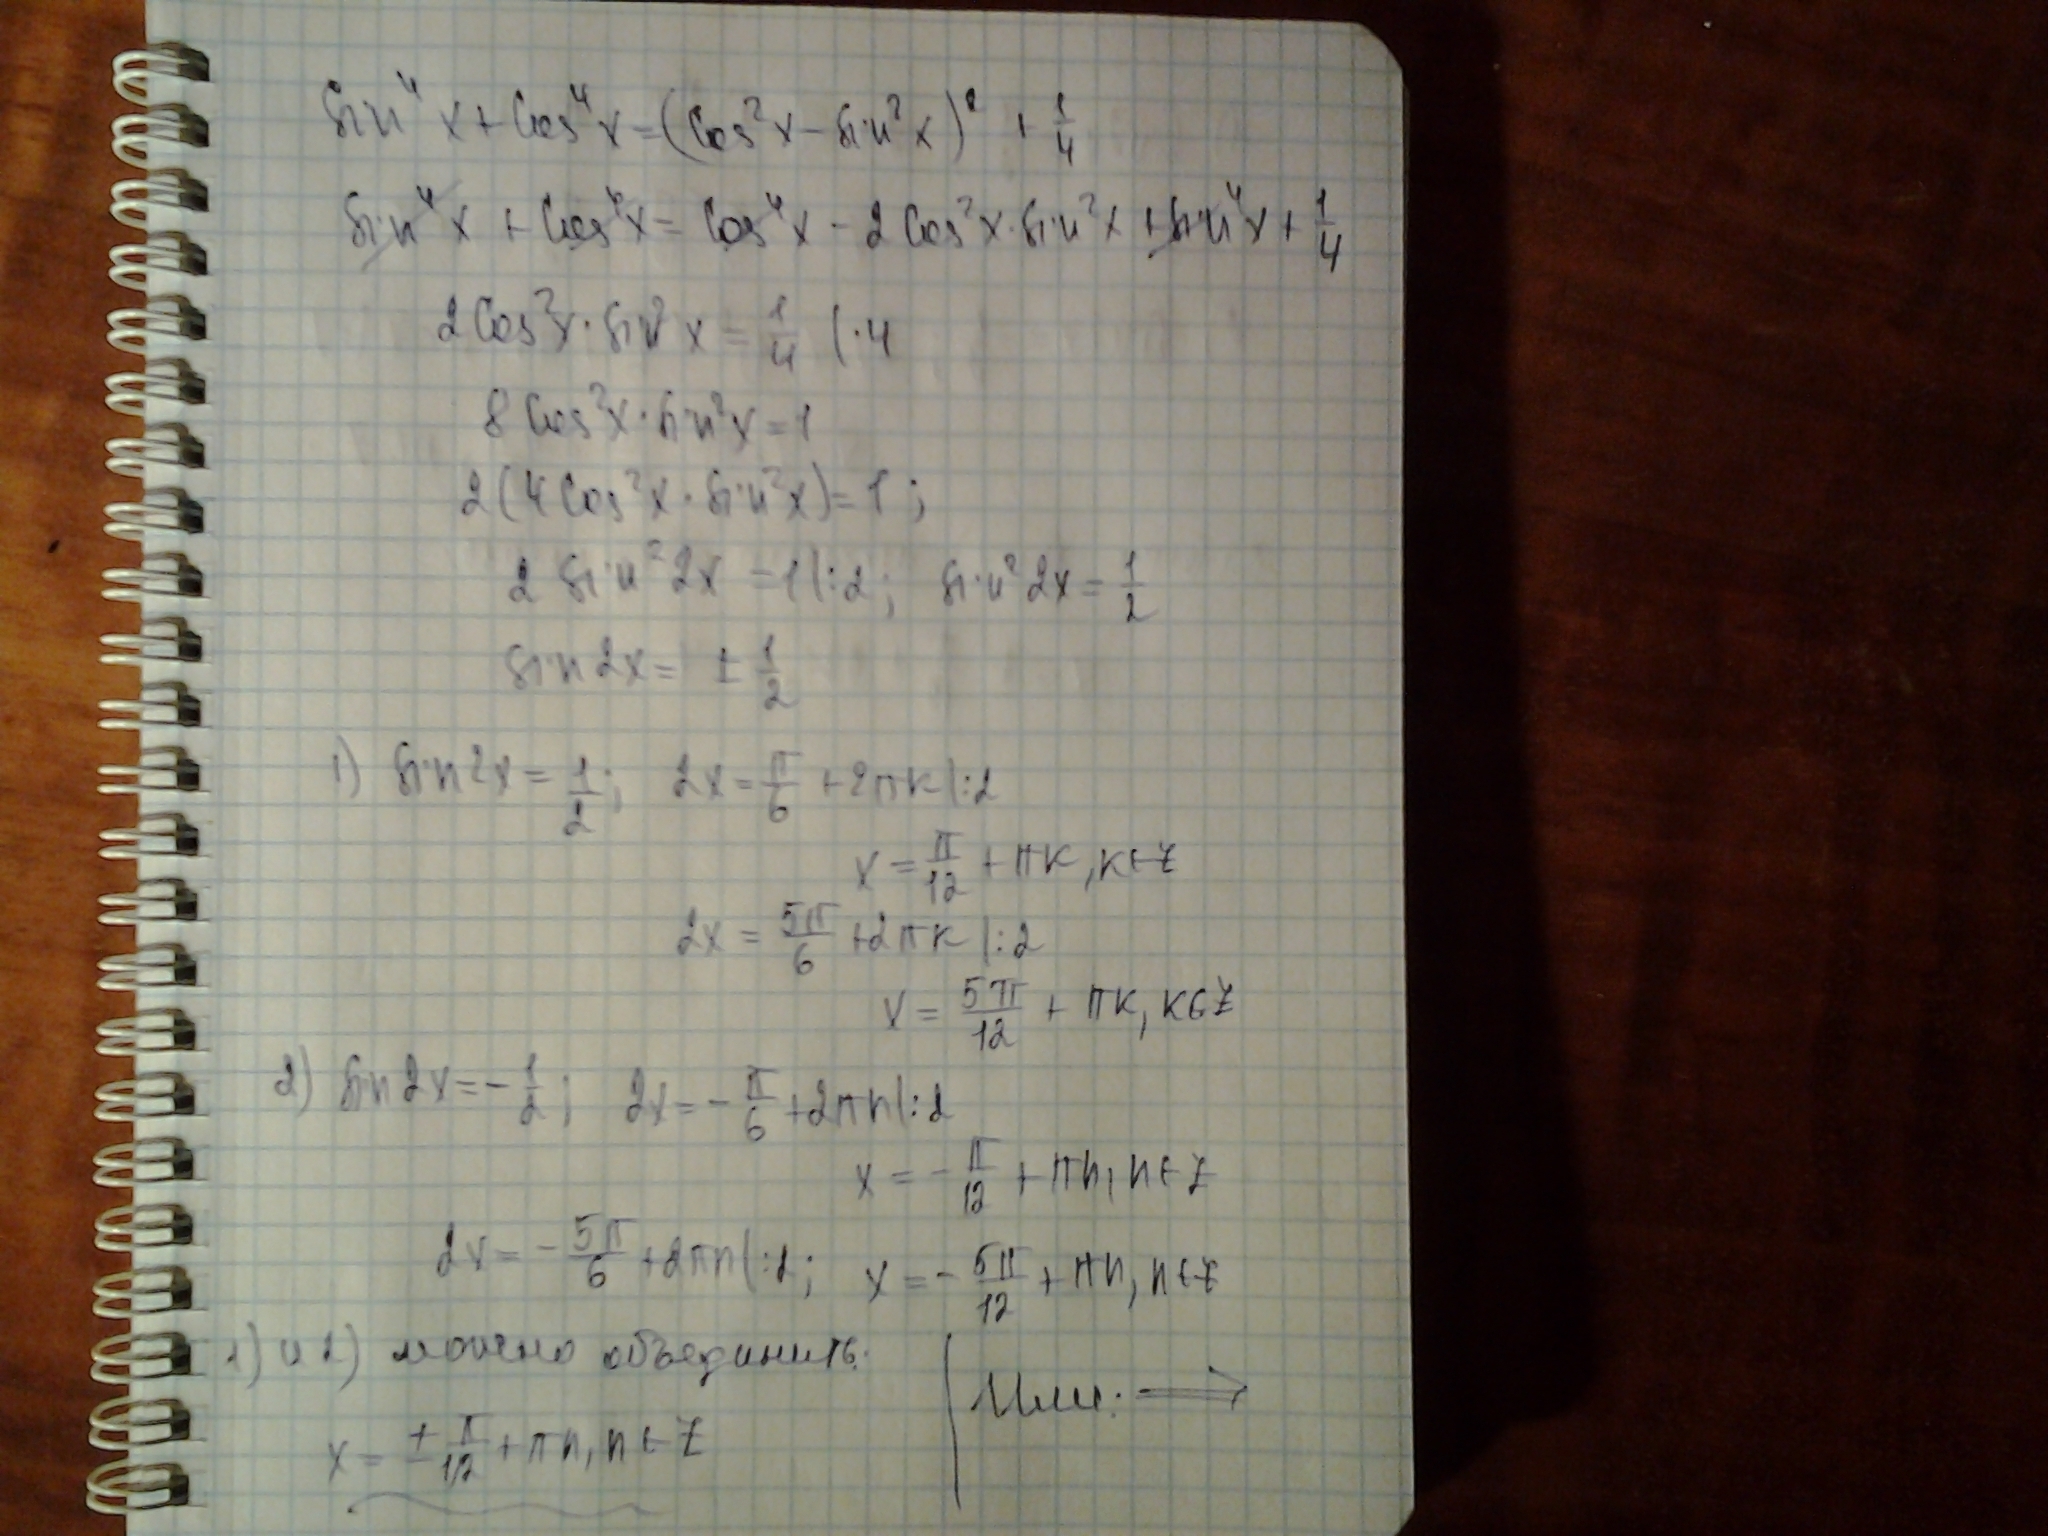 sin⁴x + cos⁴x = (cos²x - sin²x)² + 1/4
sin⁴x + cos⁴x = cos⁴x - 2cos²x·sin²x + sin⁴x + 1/4
2cos²x·sin²x = 1/4 |·4
8cos²x·sin²x = 1
2(4cos²x·sin²x) = 1;
2 sin²2x = 1 |:2; sin²2x = 1/2
sin 2x = ± 1/2
1) sin 2x = 1/2; 2x = π/6 + 2πк |:2
x = π/12 + πк, к∈Z
2x = 5π/6 + 2πк |:2
x = 5π/12 + πк, к∈Z
2) sin 2x = - 1/2; 2x = - π/6 + 2πn |:2
x = - π/12 + πn, n∈Z
2x = - 5π/6 + 2πn |:2; x = - 5π/12 + πn, n∈Z
1) и 2) можно объединить.
Или: ⟹
x = ± π/12 + πn, n∈Z